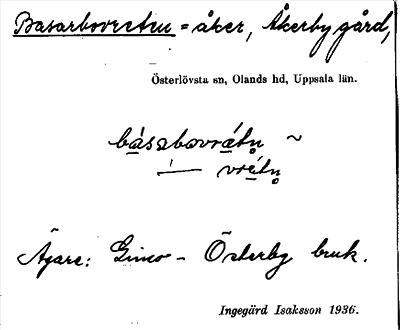 Basarbovreten = åker, Åkerby gård,
Österlövsta sn, Olands hd, Uppsala län.
básabovrétn̥ ~
— vrétn̥
Ägare: Gimo - Österby bruk.
Ingegärd Isaksson 1936.